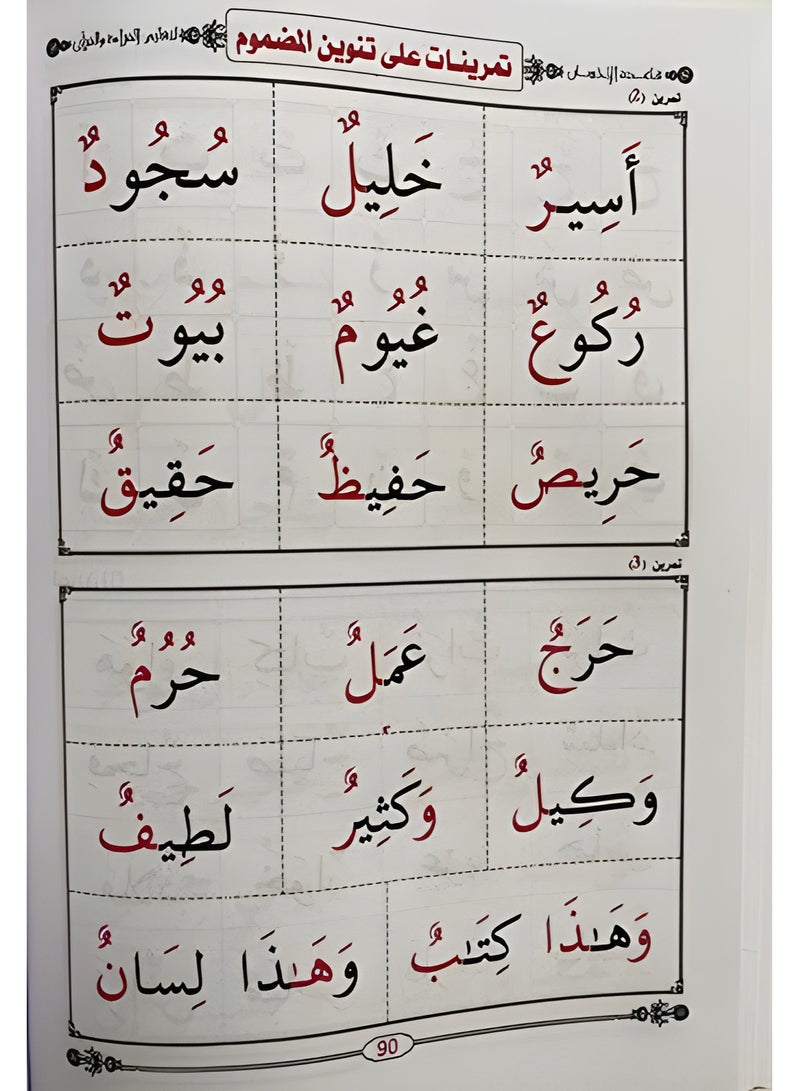 تمرينات على تنوين المضموم
تمرين (2)
أَسِيرٌ خَلِيلٌ سُجُودٌ
رُكُوعٌ غُيُومٌ بُيُوتٌ
حَرِيصٌ حَفِيظٌ حَقِيقٌ
تمرين (3)
حَرَجٌ عَمَلٌ حُرُمٌ
وَكِيلٌ وَكَثِيرٌ لَطِيفٌ
وَهَـٰذَا كِتَـٰبٌ وَهَـٰذَا لِسَانٌ
90